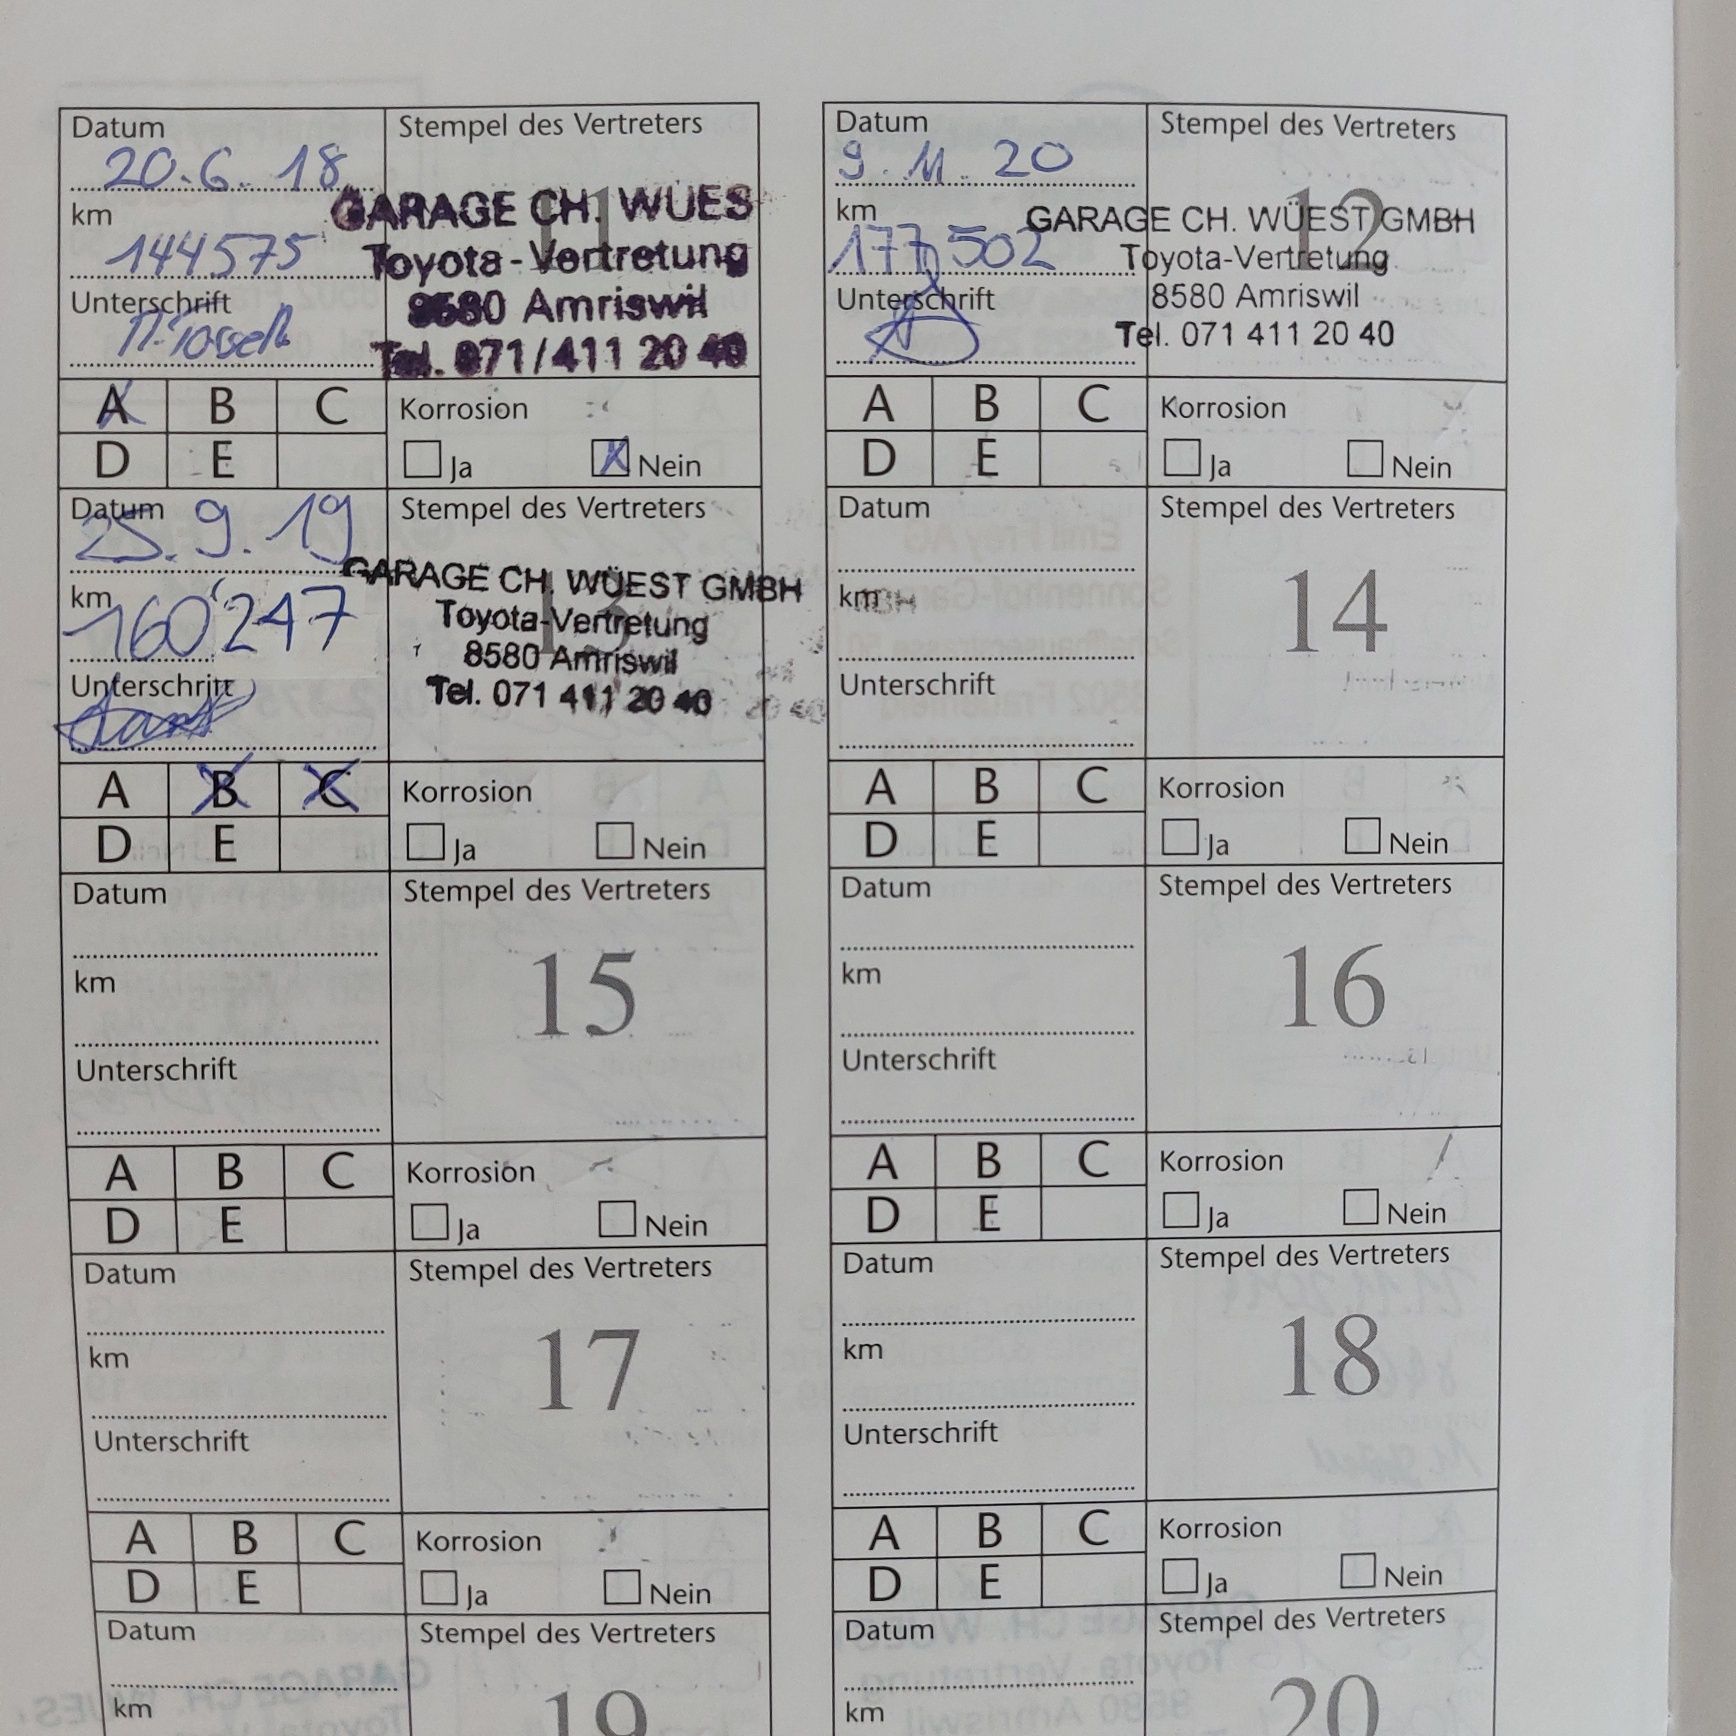 Datum
20.6.18
km
144575
Unterschrift
Stempel des Vertreters
11
GARAGE CH. WÜES
Toyota-Vertretung
8580 Amriswil
Tel. 071/411 20 40
A B C
D E
Korrosion
Ja Nein
Datum
9.11.20
km
177,502
Unterschrift
Stempel des Vertreters
12
GARAGE CH. WÜEST GMBH
Toyota-Vertretung
8580 Amriswil
Tel. 071 411 20 40
A B C
D E
Korrosion
Ja Nein
Datum
25.9.19
km
160'247
Unterschrift
Stempel des Vertreters
13
GARAGE CH. WÜEST GMBH
Toyota-Vertretung
8580 Amriswil
Tel. 071 411 20 40
A B C
D E
Korrosion
Ja Nein
Datum
km
Unterschrift
Stempel des Vertreters
14
A B C
D E
Korrosion
Ja Nein
Datum
km
Unterschrift
Stempel des Vertreters
15
A B C
D E
Korrosion
Ja Nein
Datum
km
Unterschrift
Stempel des Vertreters
16
A B C
D E
Korrosion
Ja Nein
Datum
km
Unterschrift
Stempel des Vertreters
17
A B C
D E
Korrosion
Ja Nein
Datum
km
Unterschrift
Stempel des Vertreters
18
A B C
D E
Korrosion
Ja Nein
Datum
km
Stempel des Vertreters
19
Datum
km
Stempel des Vertreters
20